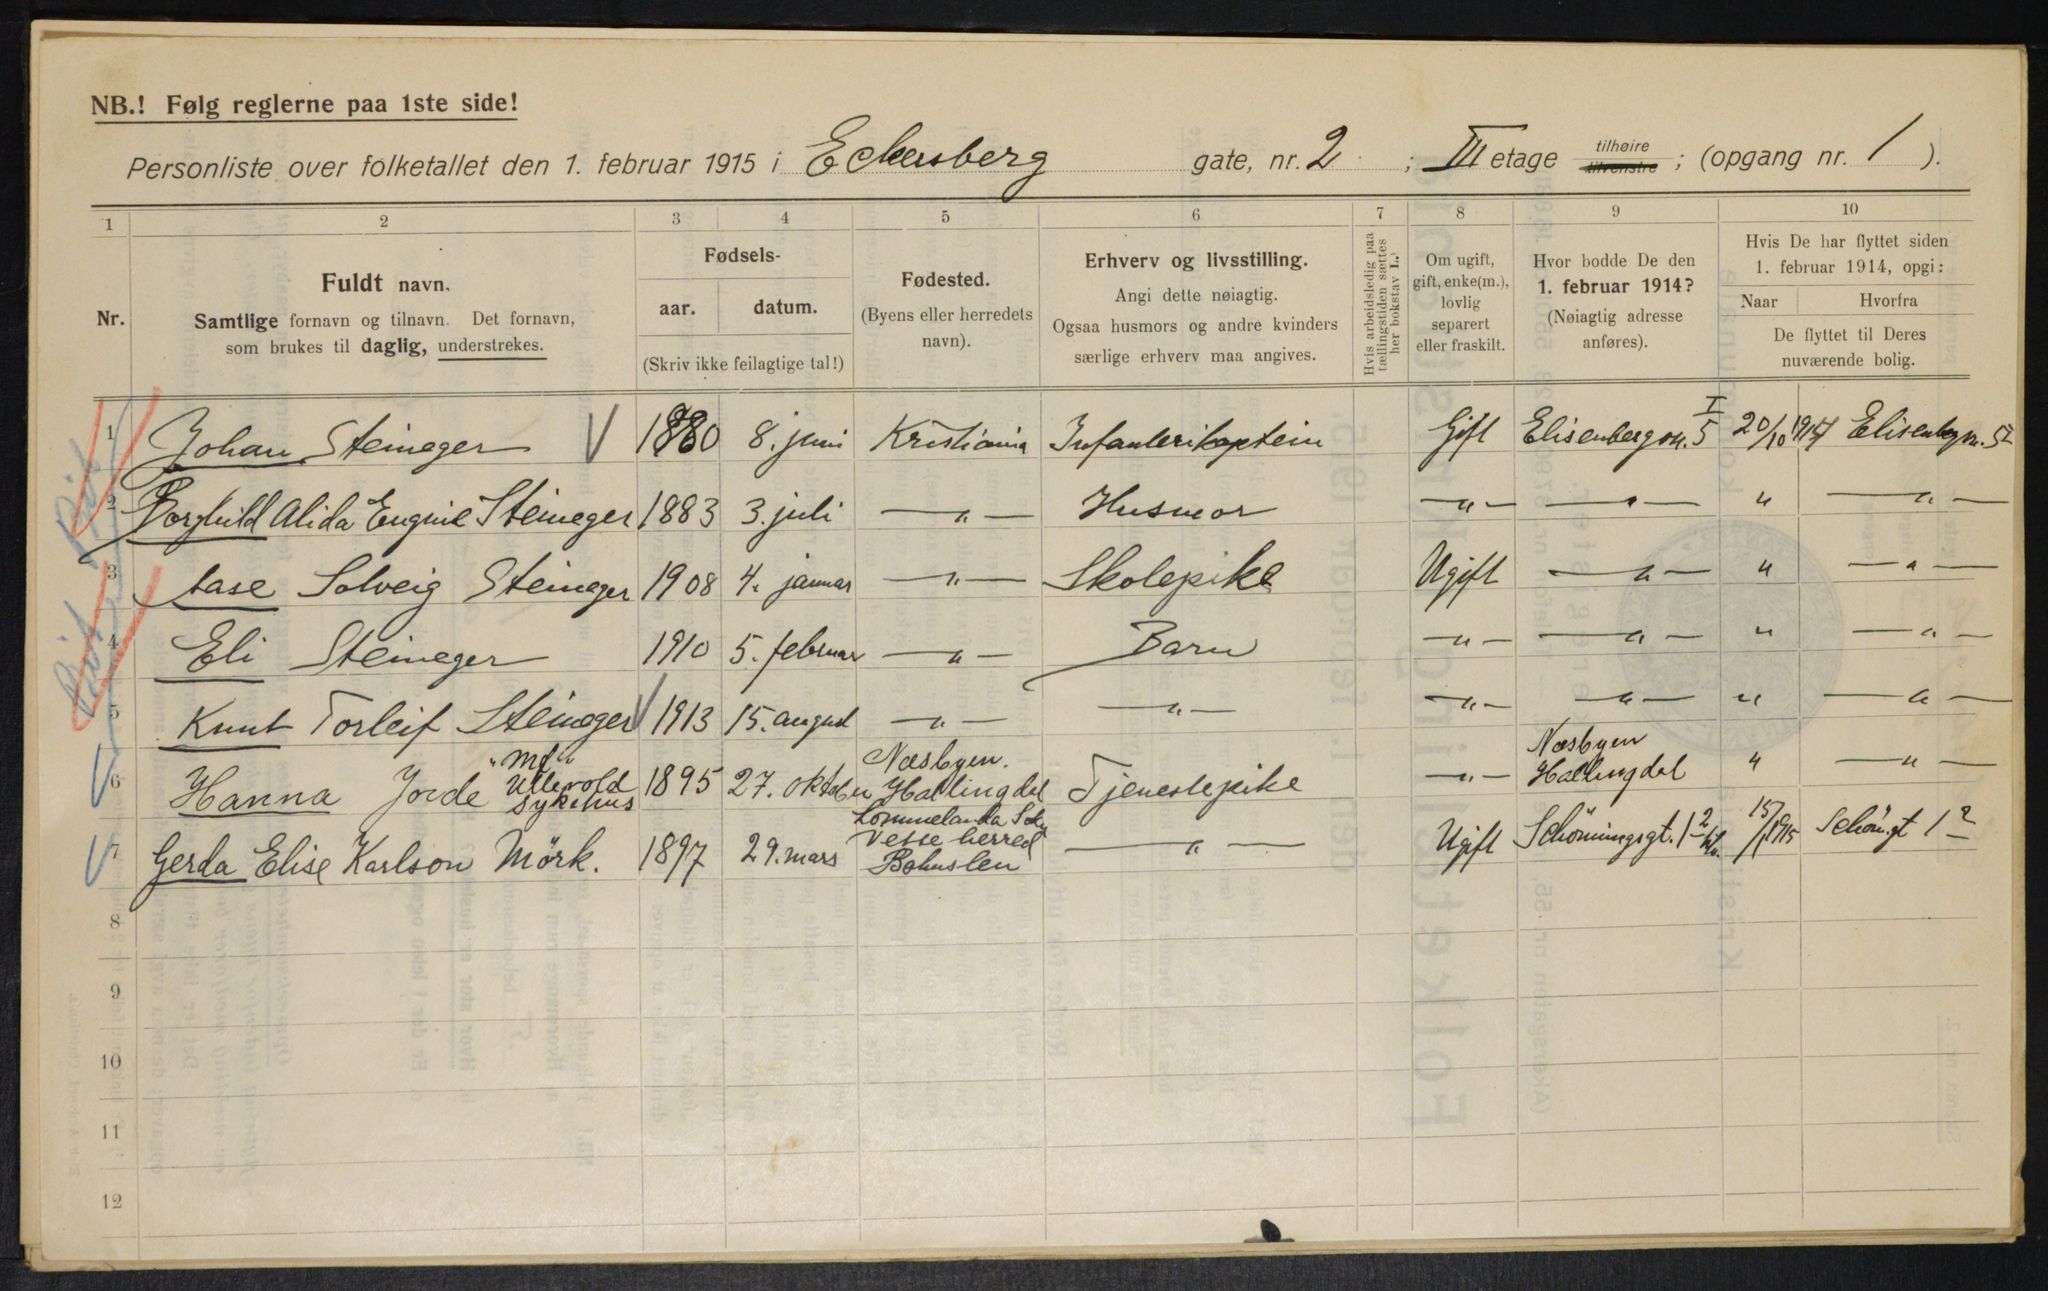 NB.! Følg reglerne paa 1ste side!
Personliste over folketallet den 1. februar 1915 i Eckersberg gate, nr. 2 ; III etage tilhøire tilvenstre ; (opgang nr. 1 ).
1 2 3 4 5 6 7 8 9 10
Nr.
Fuldt navn.
Samtlige fornavn og tilnavn. Det fornavn,
som brukes til daglig, understrekes.
Fødsels-
aar. datum.
(Skriv ikke feilagtige tal!)
Fødested.
(Byens eller herredets
navn).
Erhverv og livsstilling.
Angi dette nøiagtig.
Ogsaa husmors og andre kvinders
særlige erhverv maa angives.
Hvis arbeidsledig paa
tællingstiden sættes
her bokstav L.
Om ugift,
gift, enke(m.),
lovlig
separert
eller fraskilt.
Hvor bodde De den
1. februar 1914?
(Nøiagtig adresse
anføres).
Hvis De har flyttet siden
1. februar 1914, opgi:
Naar Hvorfra
De flyttet til Deres
nuværende bolig.
1 Johan Steineger 1880 8. juni Kristiania Infanterikaptein Gift Elisenbergvn. 5 I 20/10 1914 Elisenbgvn. 5 I
2 Borghild Alida Eugenie Steineger 1883 3. juli —"— Husmor —"— —"— " —"—
3 Aase Solveig Steineger 1908 4. januar —"— Skolepike Ugift —"— " —"—
4 Eli Steineger 1910 5. februar —"— Barn —"— —"— " —"—
5 Knut Torleif Steineger 1913 15. august —"— —"— —"— —"— " —"—
6 Hanna Jorde "Md" Ullevold sykehus 1895 27. oktober Næsbyen. Hallingdal Tjenestepike —"— Næsbyen Hallingdal " —"—
7 Gerda Elise Karlson Mörk. 1897 29. mars Lommelanda Vette herred Bohuslen —"— Ugift Schöningsgt. 1 2 15/1 1915 Schöngt 1 2
8
9
10
11
12